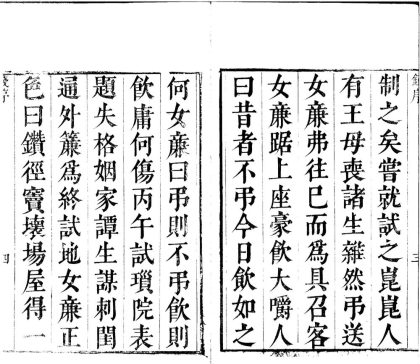 制之矣嘗就試之崑崑人
有王母喪諸生雜然弔送
女廉弗往已而爲具召客
女廉踞上座豪飲大嚼人
曰昔者不弔今日飲如之
三
何女廉曰弔則不弔飲則
飲庸何傷丙午試瑣院表
題失格姻家譚生謀刺閨
通外簾爲終試地女廉正
色曰鑽徑竇壞場屋得一
四